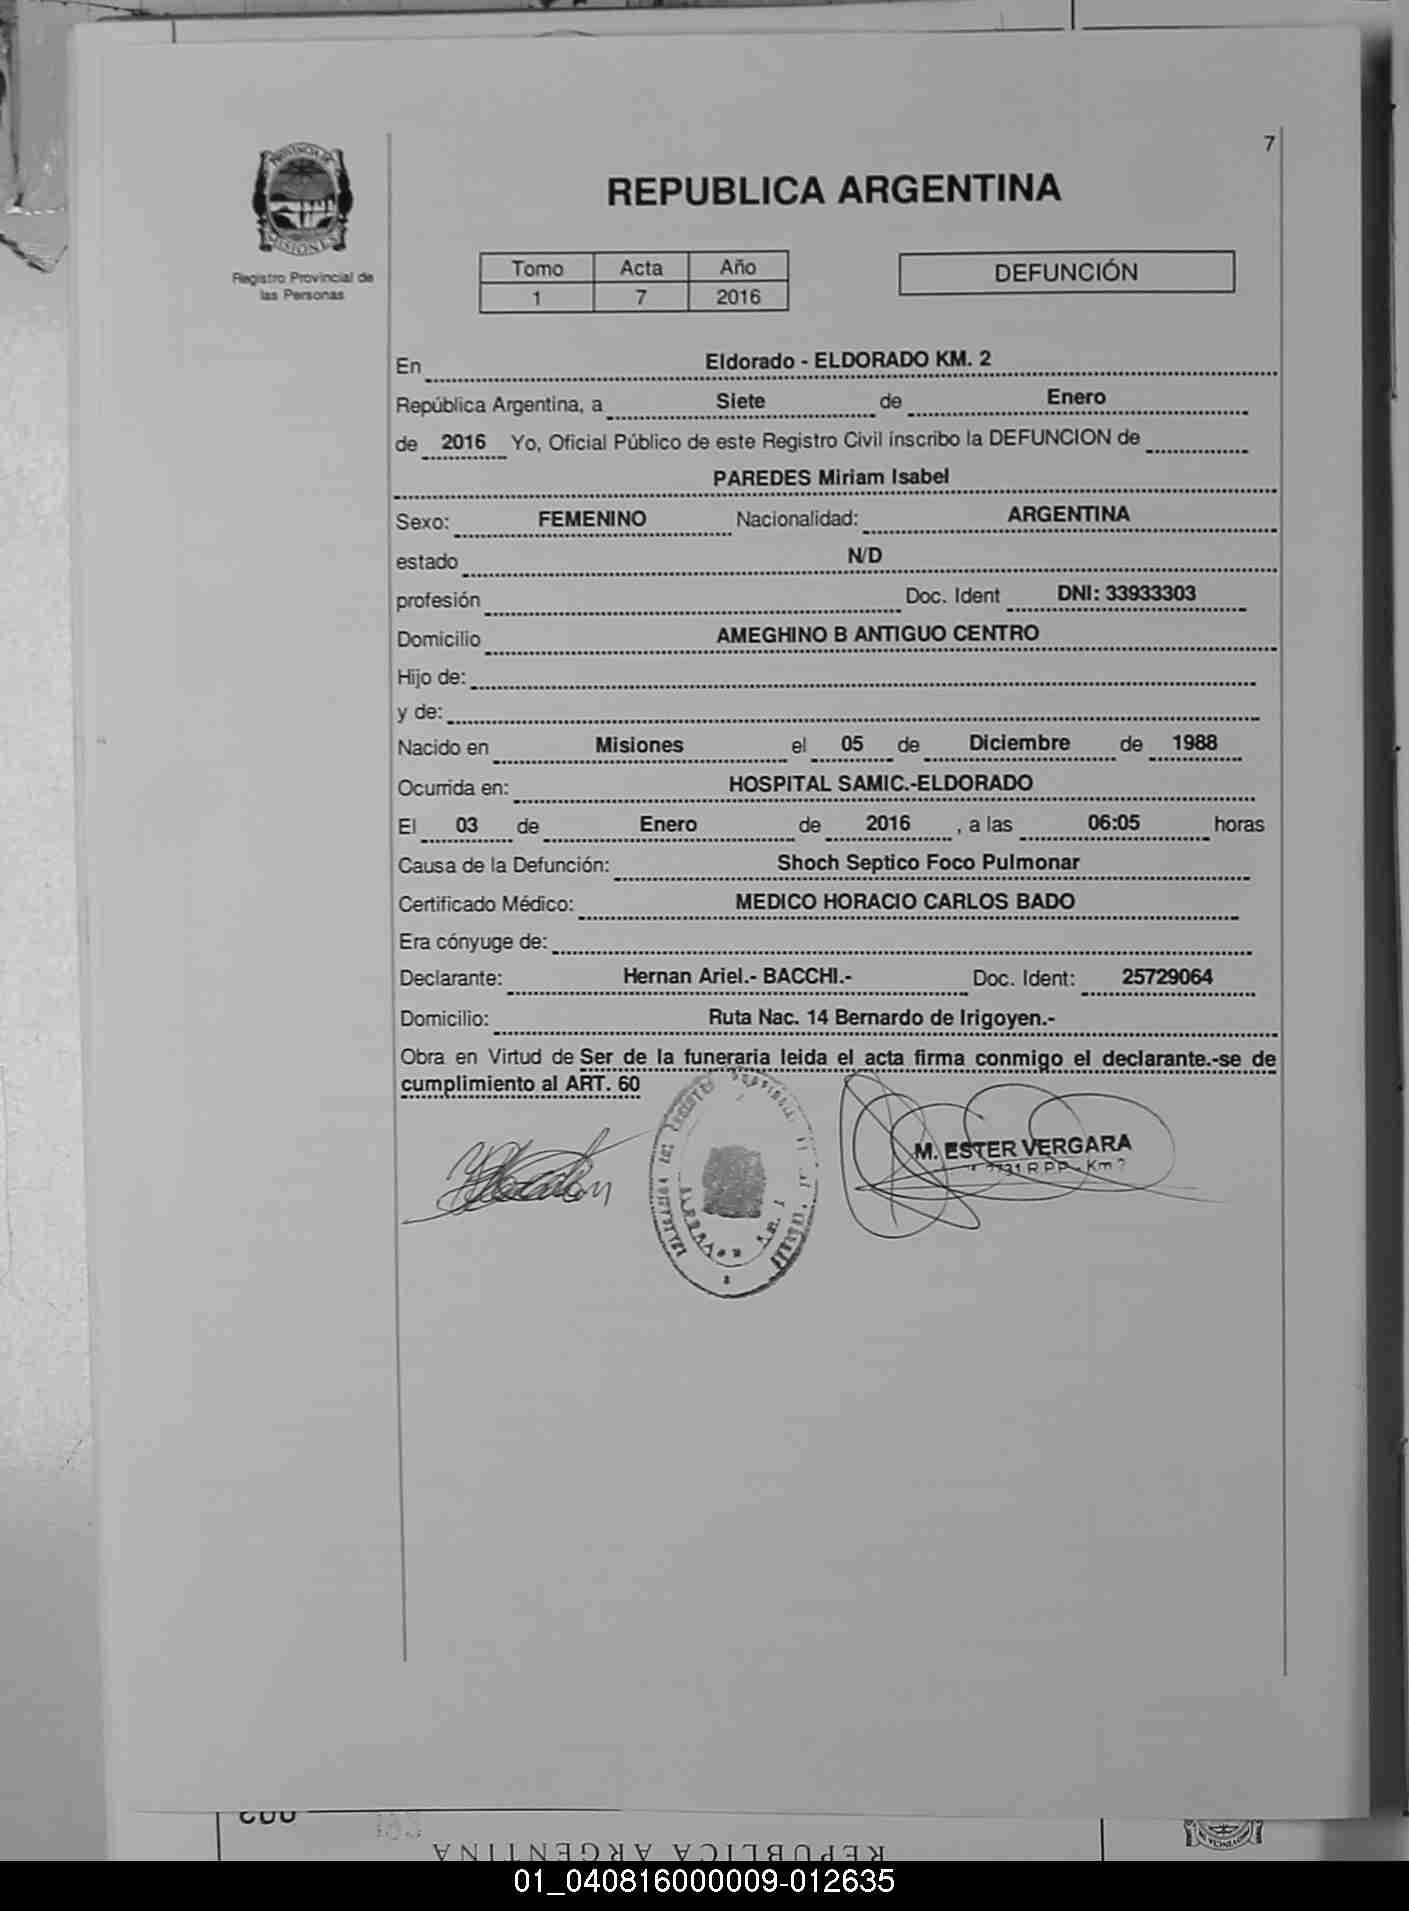 7
PROVINCIA DE
MISIONES
Registro Provincial de
las Personas
REPUBLICA ARGENTINA
Tomo Acta Año
1 7 2016
DEFUNCIÓN
En Eldorado - ELDORADO KM. 2
República Argentina, a Siete de Enero
de 2016 Yo, Oficial Público de este Registro Civil inscribo la DEFUNCION de
PAREDES Miriam Isabel
Sexo: FEMENINO Nacionalidad: ARGENTINA
estado N/D
profesión Doc. Ident DNI: 33933303
Domicilio AMEGHINO B ANTIGUO CENTRO
Hijo de:
y de:
Nacido en Misiones el 05 de Diciembre de 1988
Ocurrida en: HOSPITAL SAMIC.-ELDORADO
El 03 de Enero de 2016 , a las 06:05 horas
Causa de la Defunción: Shoch Septico Foco Pulmonar
Certificado Médico: MEDICO HORACIO CARLOS BADO
Era cónyuge de:
Declarante: Hernan Ariel.- BACCHI.- Doc. Ident: 25729064
Domicilio: Ruta Nac. 14 Bernardo de Irigoyen.-
Obra en Virtud de Ser de la funeraria leida el acta firma conmigo el declarante.-se de
cumplimiento al ART. 60
M. ESTER VERGARA
R.P.P. Km 2
REPUBLICA ARGENTINA
01_040816000009-012635